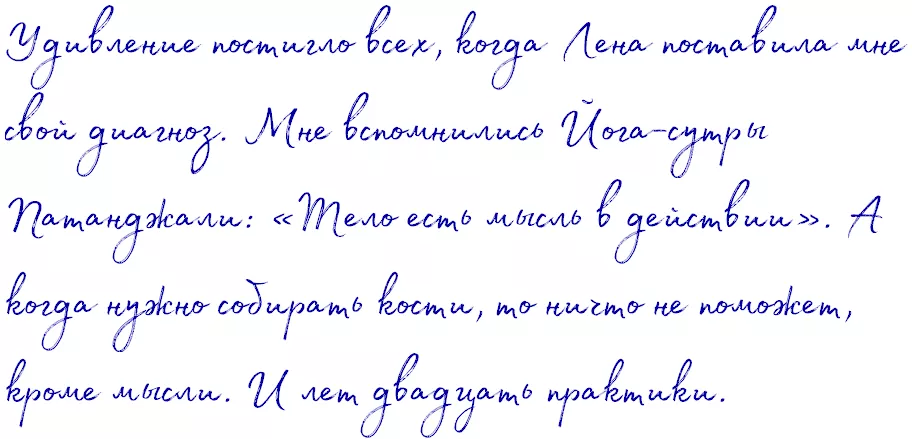 Удивление постигло всех, когда Лена поставила мне
свой диагноз. Мне вспомнились Йога-сутры
Патанджали: «Тело есть мысль в действии». А
когда нужно собирать кости, то ничто не поможет,
кроме мысли. И лет двадцать практики.